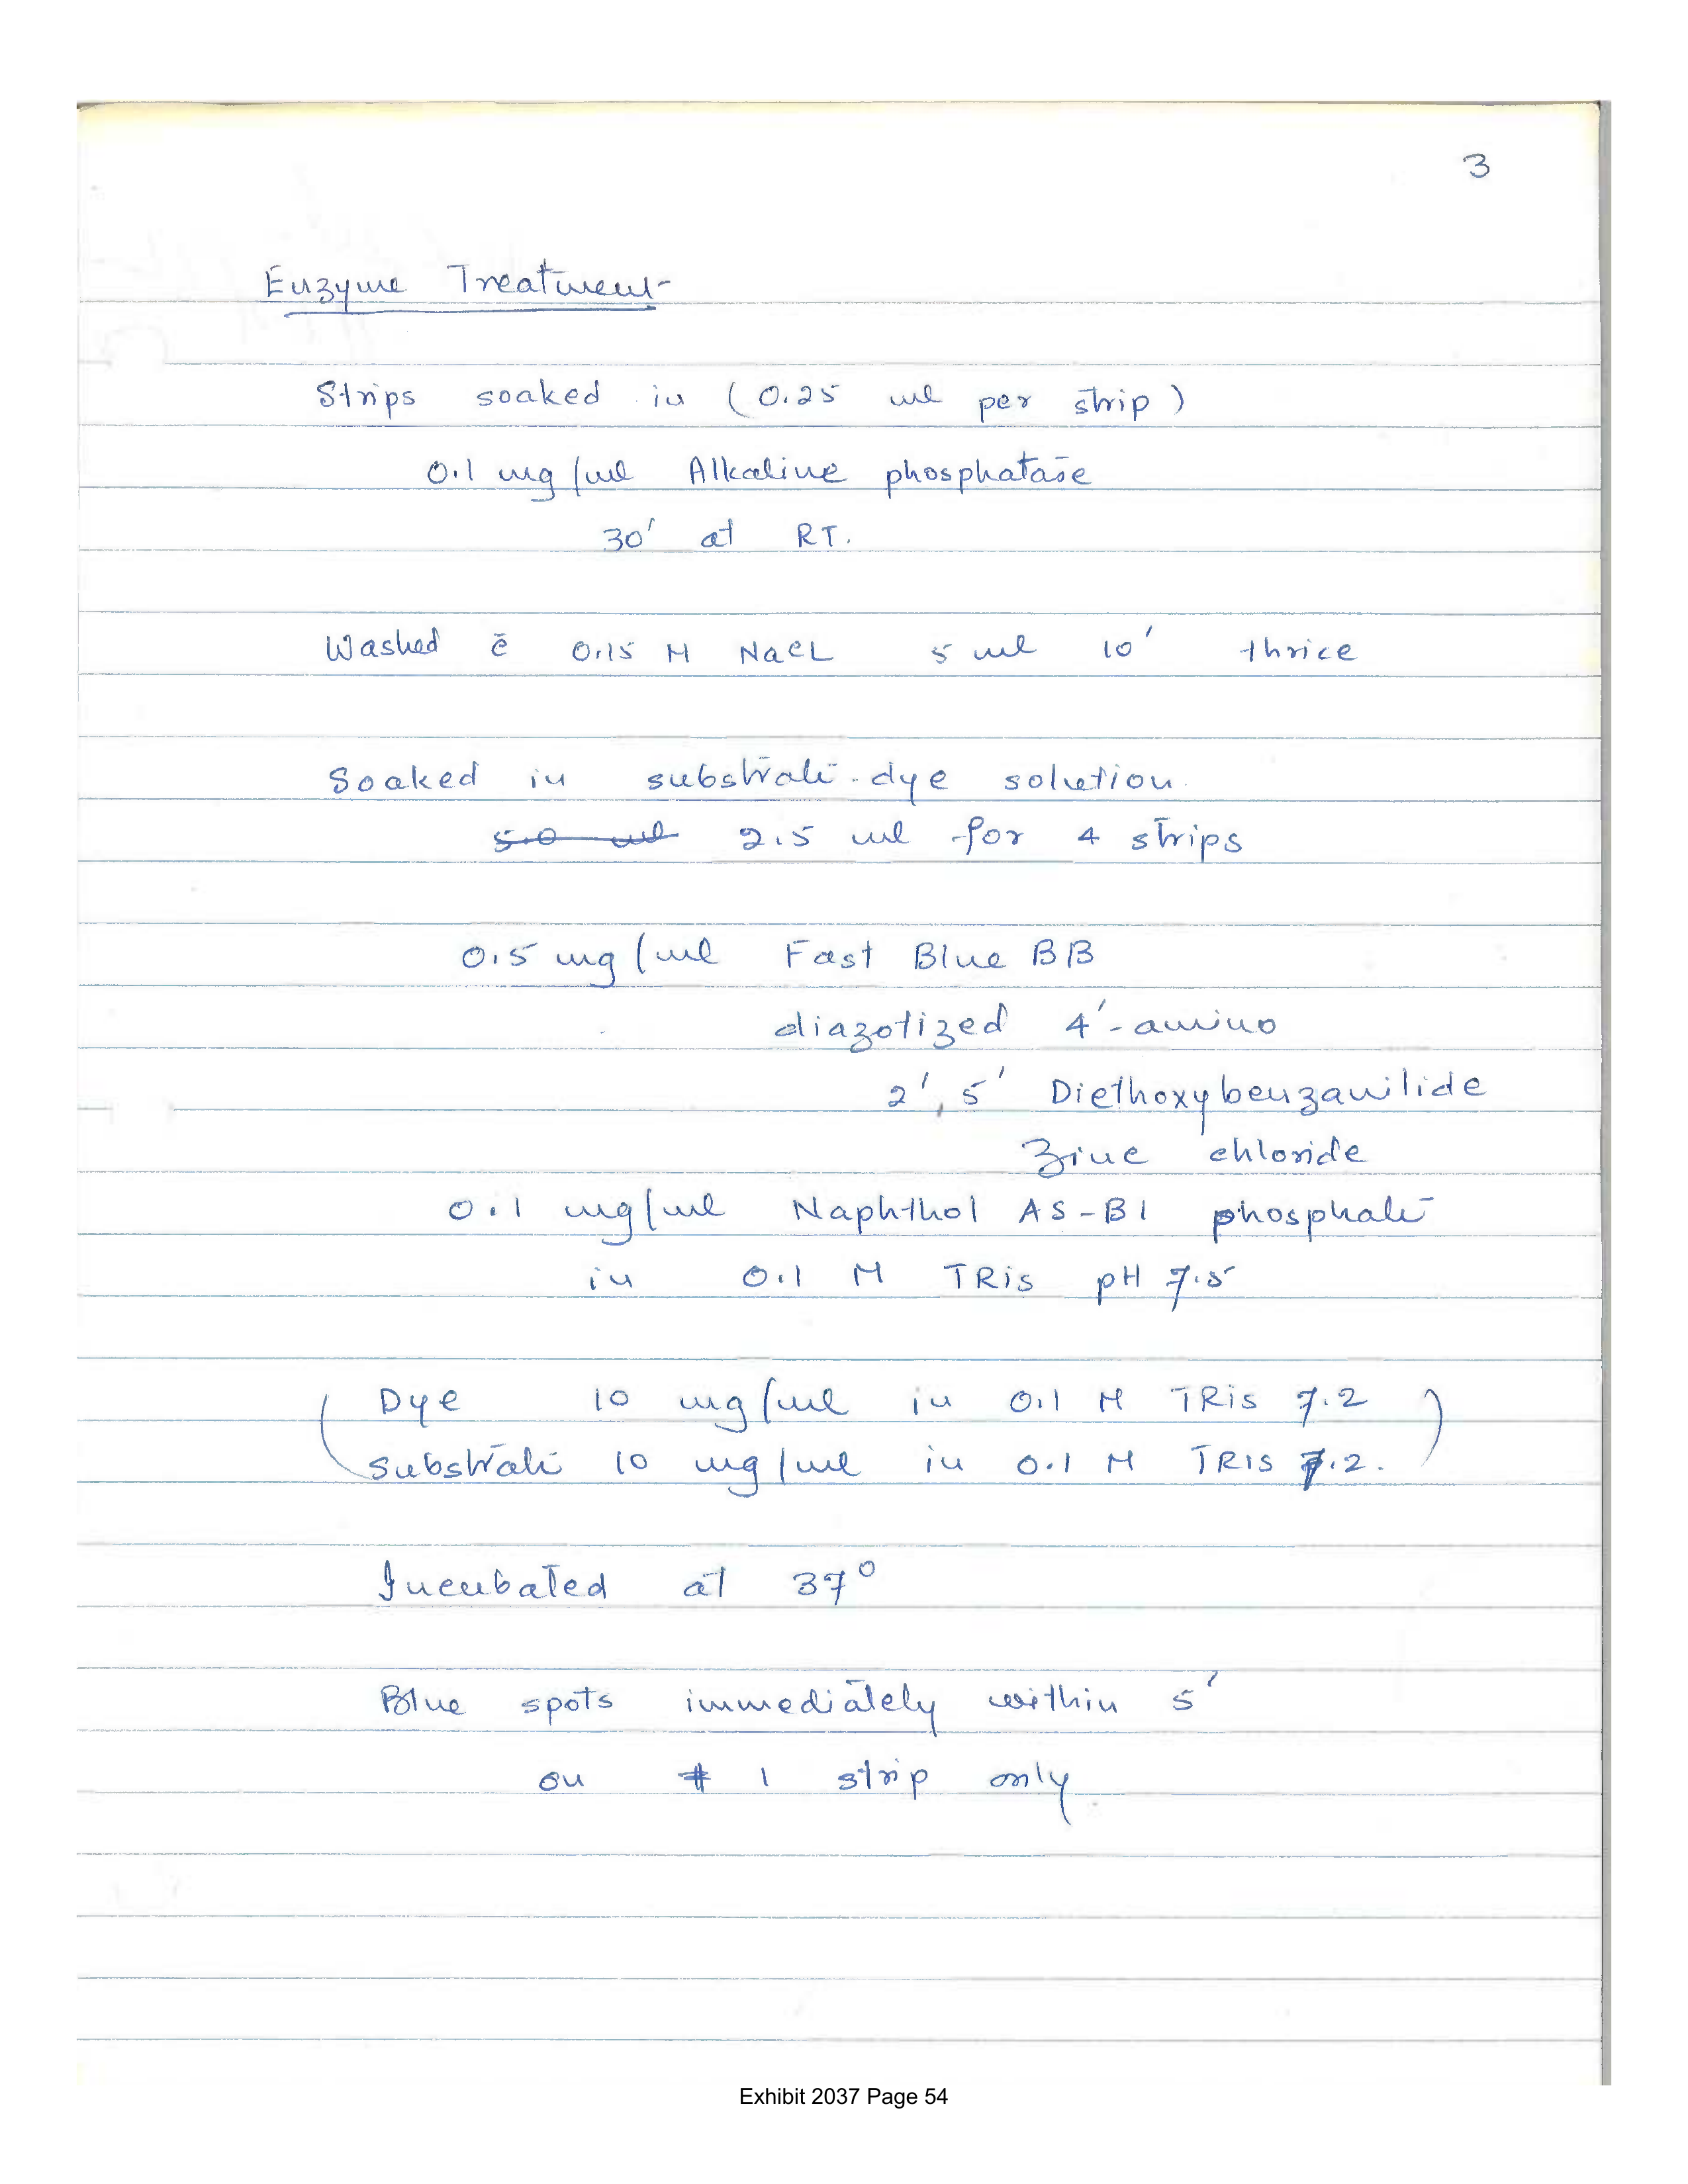 3
Enzyme Treatment
Strips soaked in (0.25 ml per strip)
0.1 mg/ml Alkaline phosphatase
30' at RT.
Washed c̄ 0.15 M NaCL 5 ml 10' thrice
Soaked in substrate-dye solution.
5.0 ml 2.5 ml for 4 strips
0.5 mg/ml Fast Blue BB
diazotized 4'-amino
2', 5' Diethoxybenzanilide
Zinc chloride
0.1 mg/ml Naphthol AS-BI phosphate
in 0.1 M TRis pH 7.5
(Dye 10 mg/ml in 0.1 M TRis 7.2
substrate 10 mg/ml in 0.1 M TRIS 7.2.)
Incubated at 37°
Blue spots immediately within 5'
on # 1 strip only
Exhibit 2037 Page 54